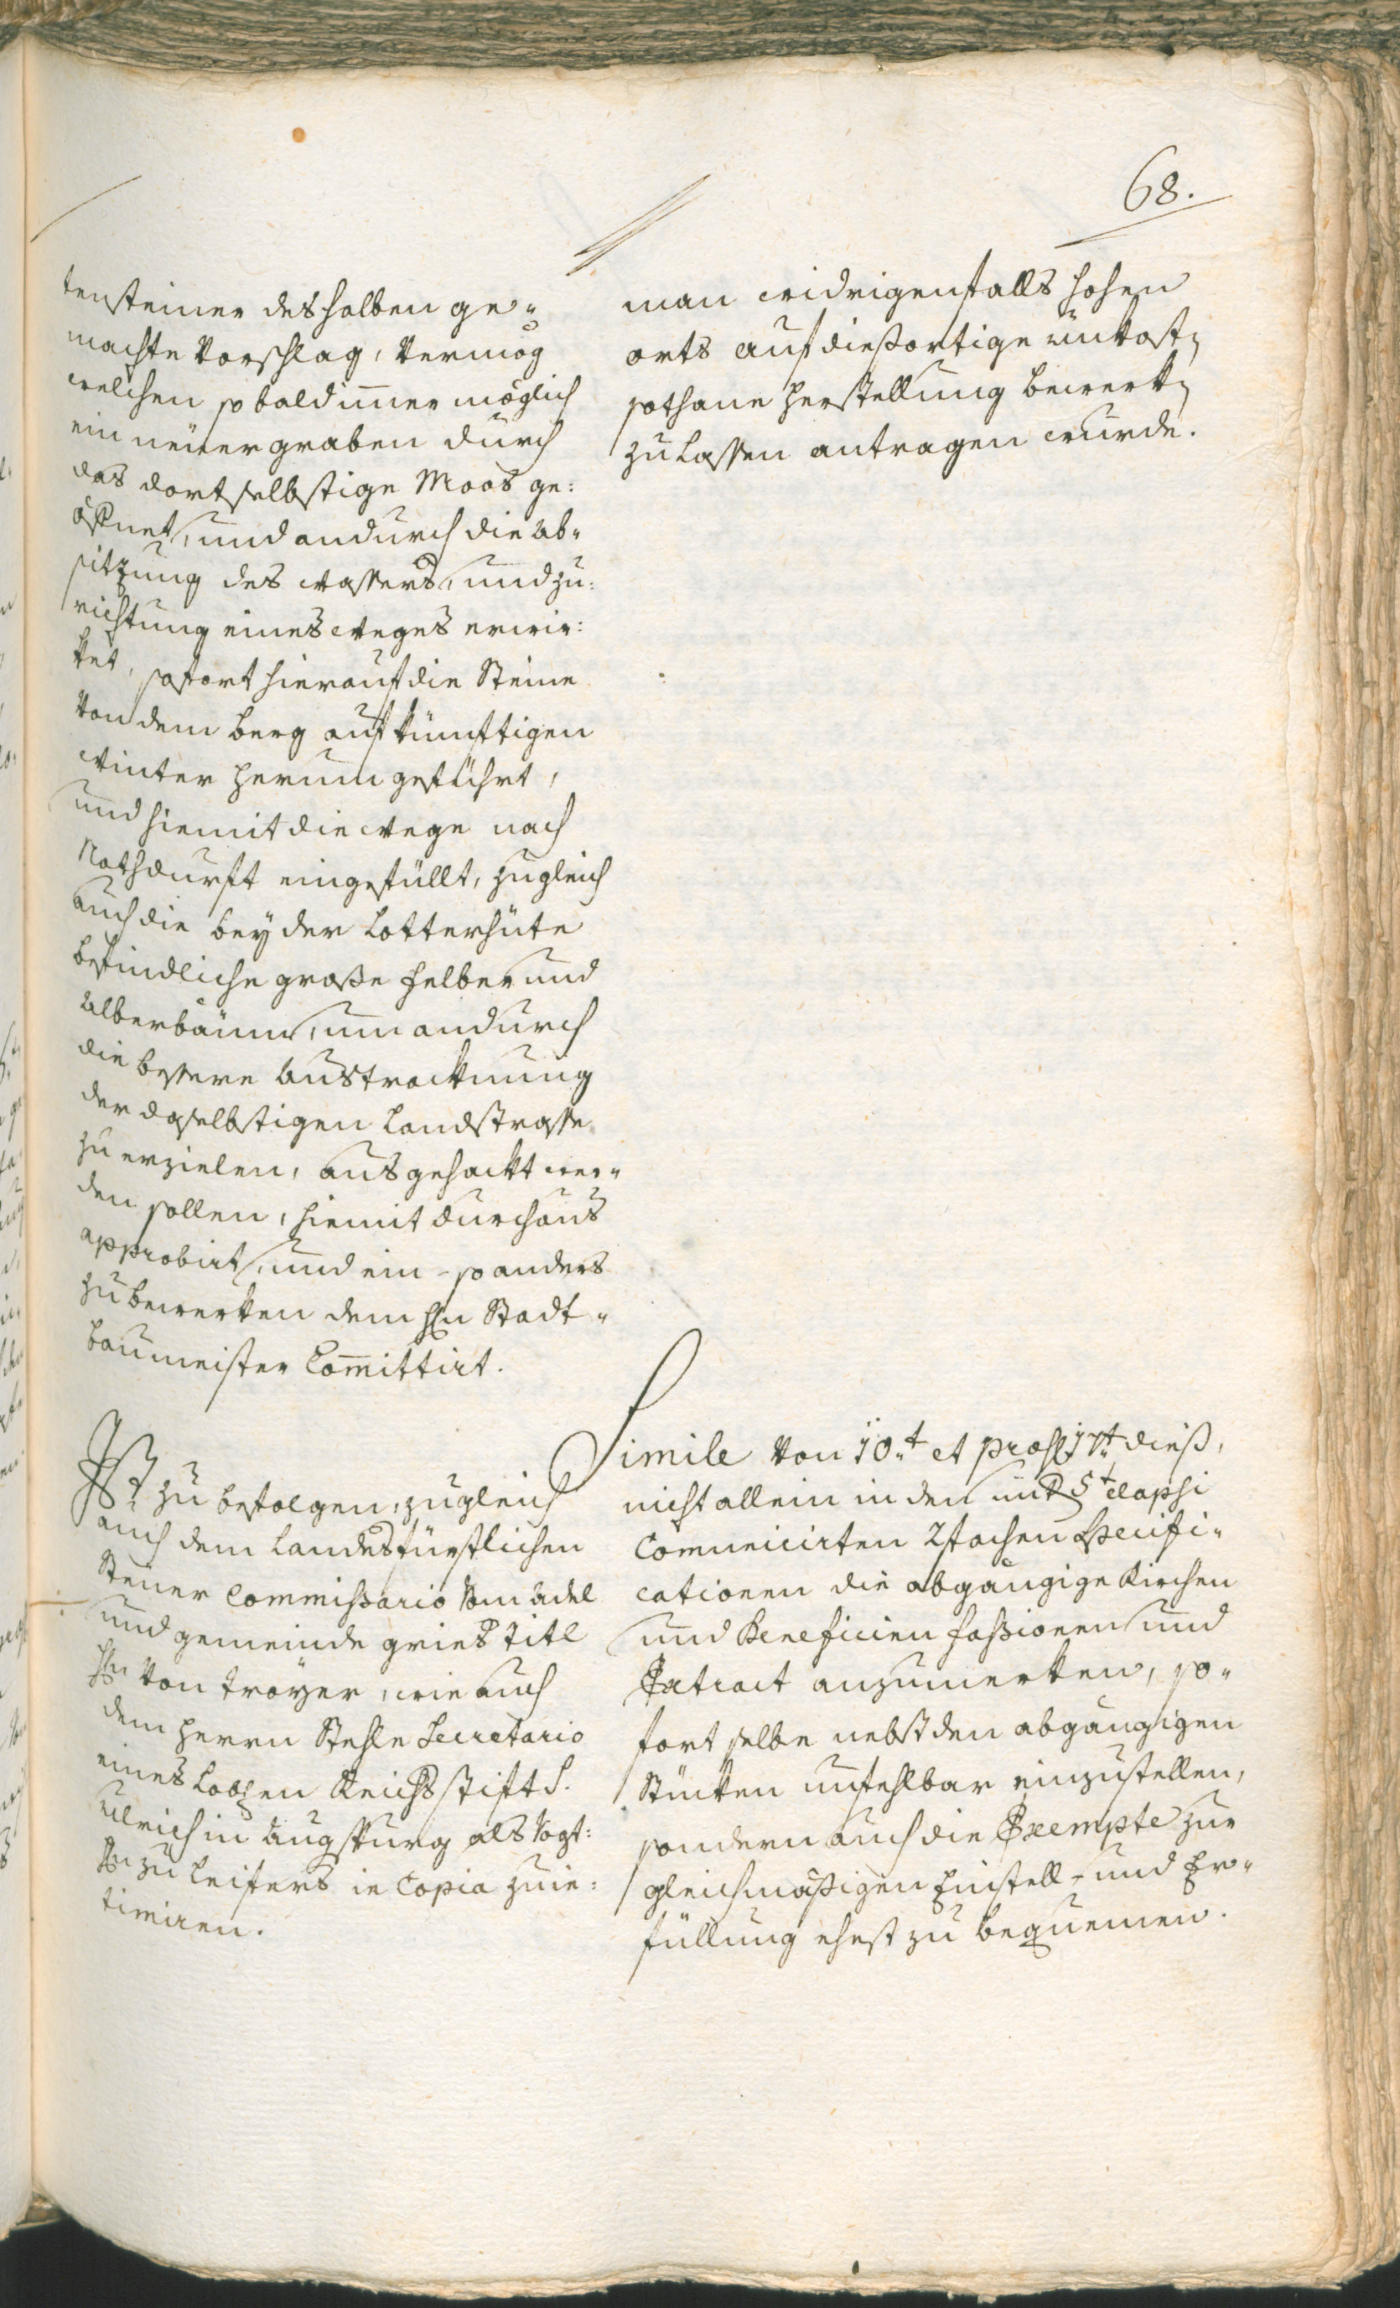 68.
tensteiner deshalben ge-
machte Vorschlag, Vermög
welchen so bald immer möglich
ein neüer graben durch
das dortselbstige Moos ge:
öffnet, und andurch die ab-
sitzung des wassers, und zu:
richtung eines weges erwir:
ket, sofort hierauf die Steine
Von dem berg auf künftigen
winter herum geführt,
und hiemit die wege nach
Nothdurft eingefüllt, zugleich
auch die beÿ der Lotterhüte
befindliche große felber und
Alberbäum, um andurch
die bessere Austrocknung
der daselbstigen Landstrasse
zu erzielen, ausgehackt wer-
den sollen, hiemit durchaus
approbirt, und ein- so anders
zu bewerken dem Hn Stadt-
baumeister Com̄ittirt.
Ist zu befolgen, zugleich
auch dem Landesfürstlichen
Steüer Commissario Vom Adel
und gemeinde gries Titl
Hn Von Troyer, wie auch
dem herrn Stehle Secretario
eines Reichsstift S.
Ulrich in Augspurg als Vogt:
Hn zu Leifers in Copia zu in:
timiren.
man widrigenfalls hohen
orts auf dießortige unkosten
sothane herstellung bewerken
zu lassen antragen wurde.
Simile Von 10.t et præs 17t dieß,
nicht allein in den unterm 5t elapsi
Com̄unicirten 2fachen Specifi-
cationen die abgängige Kirchen
und Beneficien fassionen und
Extract anzumerken, so-
fort selbe nebst den abgängigen
Stücken unfehlbar einzustellen,
sondern auch die Exempte zur
gleichmäßigen Einstell- und Er-
füllung ehest zu bequemen.